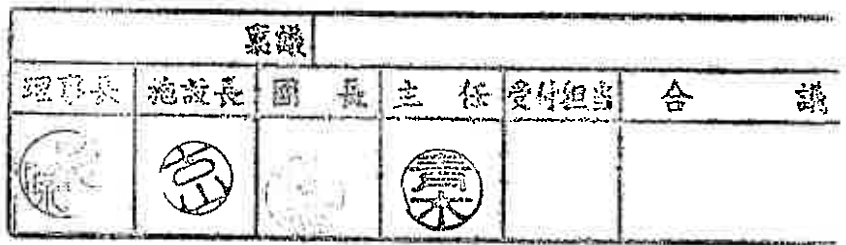 稟議
理事長 施設長 園 長 主 任 受付担当 合 議